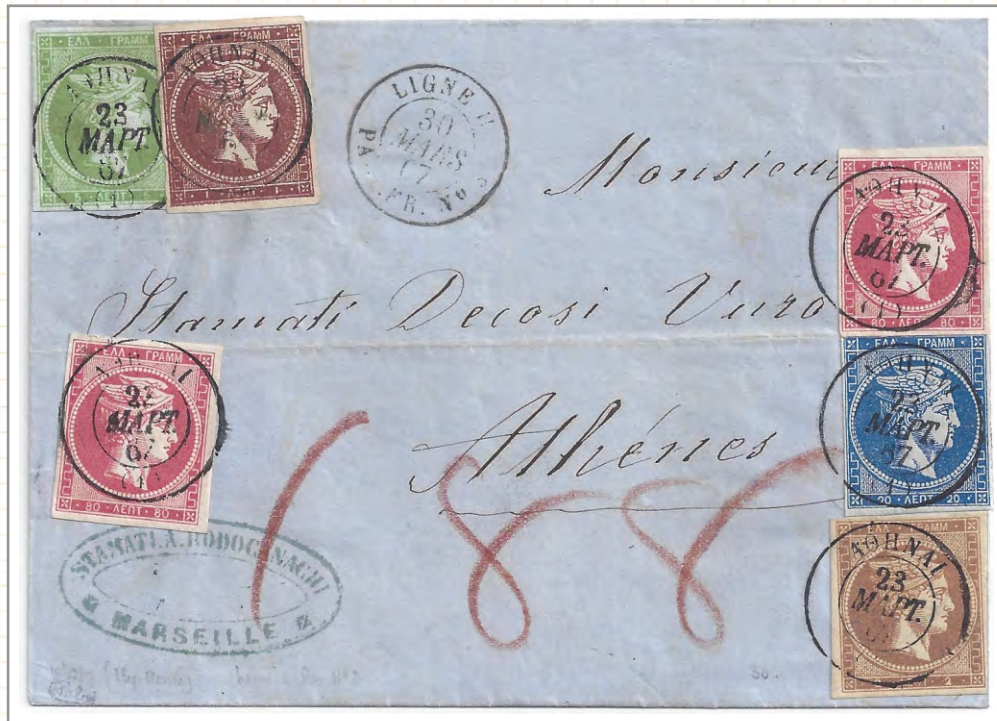 ΕΛΛ ΓΡΑΜΜ
ΑΘΗΝΑΙ
23
ΜΑΡΤ.
67
(1)
ΕΛΛ ΓΡΑΜΜ
ΑΘΗΝΑΙ
23
1 1
LIGNE
30
MARS
67
PAQ. FR. No
Monsieur
ΕΛΛ ΓΡΑΜΜ
ΑΘΗΝΑΙ
23
ΜΑΡΤ.
67
(1)
80 ΛΕΠΤ 80
Stamati Decosi Vuro
ΕΛΛ ΓΡΑΜΜ
ΑΘΗΝΑΙ
23
ΜΑΡΤ.
67
(1)
80 ΛΕΠΤ 80
ΕΛΛ ΓΡΑΜΜ
ΑΘΗΝΑΙ
23
ΜΑΡΤ.
67
20 ΛΕΠΤ 20
Athénes
188
ΕΛΛ ΓΡΑΜΜ
ΑΘΗΝΑΙ
23
ΜΑΡΤ.
67
STAMATI.A.RODOCANACHI
MARSEILLE